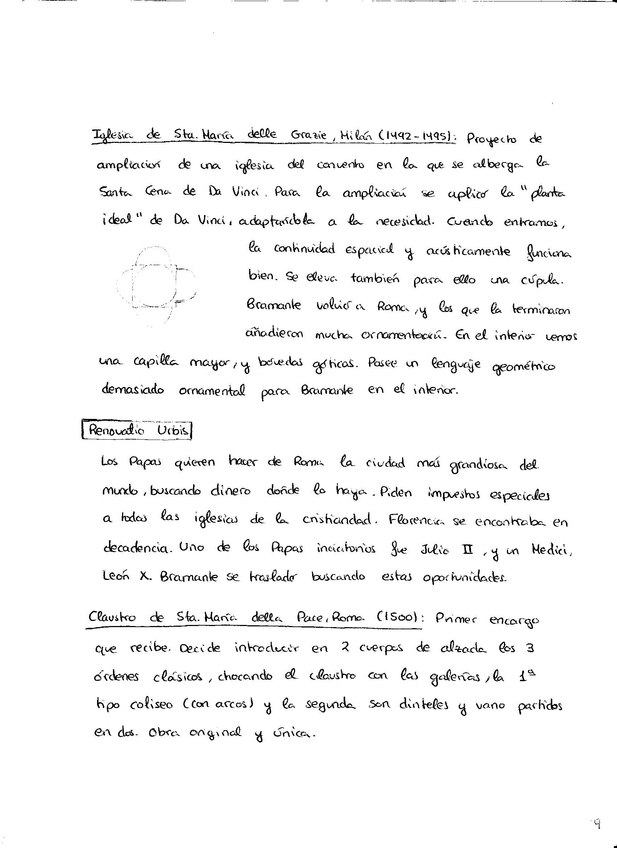 Iglesia de Sta. María delle Grazie, Milán (1492-1495): Proyecto de
ampliación de una iglesia del convento en la que se alberga la
Santa Cena de Da Vinci. Para la ampliación se aplicó la "planta
ideal" de Da Vinci, adaptándola a la necesidad. Cuando entramos,
la continuidad espacial y acústicamente funciona
bien. Se eleva también para ello una cúpula.
Bramante volvió a Roma, y los que la terminaron
añadieron mucha ornamentación. En el interior vemos
una capilla mayor, y bóvedas góticas. Posee un lenguaje geométrico
demasiado ornamental para Bramante en el interior.
Renovatio Urbis
Los Papas quieren hacer de Roma la ciudad más grandiosa del
mundo, buscando dinero donde lo haya. Piden impuestos especiales
a todas las iglesias de la cristiandad. Florencia se encontraba en
decadencia. Uno de los Papas iniciatorios fue Julio II, y un Medici,
León X. Bramante se traslador buscando estas oportunidades.
Claustro de Sta. María della Pace, Roma (1500): Primer encargo
que recibe. Decide introducir en 2 cuerpos de alzada los 3
órdenes clásicos, chocando el claustro con las galerías, la 1ª
tipo coliseo (con arcos) y la segunda son dinteles y vano partidos
en dos. Obra original y única.
9